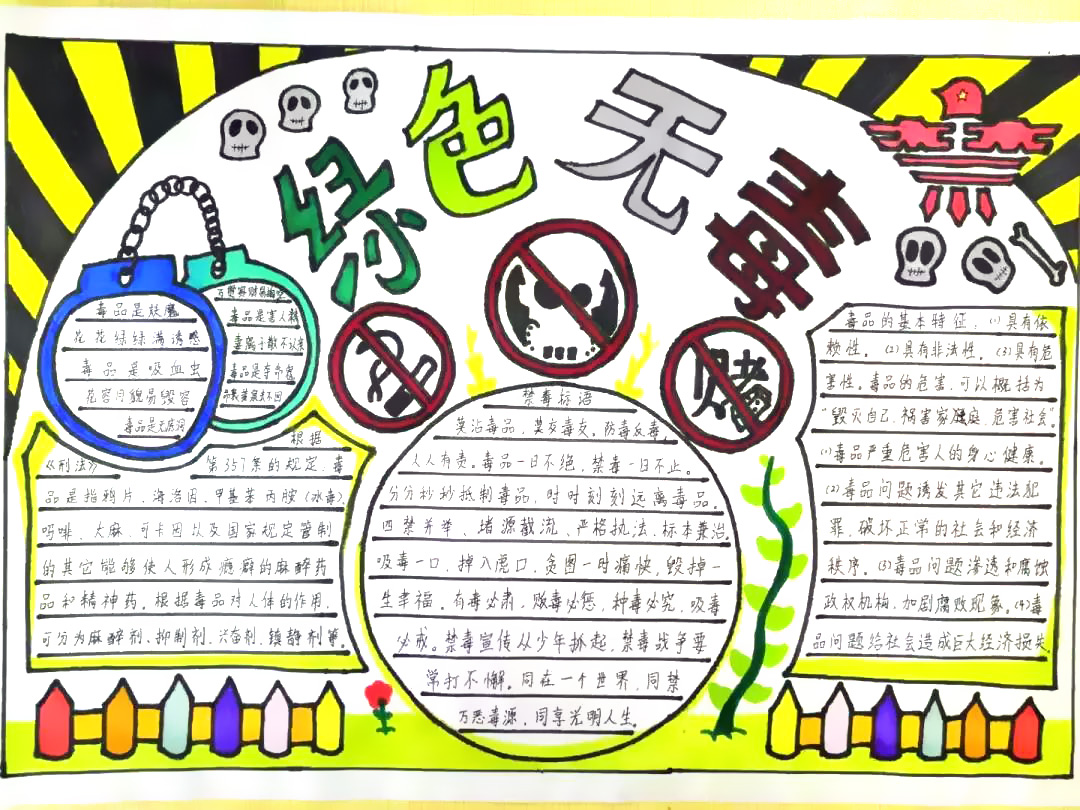 绿色无毒
毒品是妖魔
花花绿绿满诱惑
毒品是吸血虫
花容月貌易毁容
毒品是无底洞
万贯家财易掏空
毒品是害人精
妻离子散不认亲
毒品是夺命鬼
根据
《刑法》第357条的规定，毒
品是指鸦片、海洛因、甲基苯丙胺（冰毒）、
吗啡、大麻、可卡因以及国家规定管制
的其它能够使人形成瘾癖的麻醉药
品和精神药。根据毒品对人体的作用，
可分为麻醉剂、抑制剂、兴奋剂、镇静剂等
禁毒标语
莫沾毒品，莫交毒友。防毒反毒，
人人有责。毒品一日不绝，禁毒一日不止。
分分秒秒抵制毒品，时时刻刻远离毒品。
四禁并举、堵源截流、严格执法、标本兼治。
吸毒一口，掉入虎口，贪图一时痛快，毁掉一
生幸福。有毒必肃，贩毒必惩，种毒必究，吸毒
必戒。禁毒宣传从少年抓起，禁毒战争要
常打不懈。同在一个世界，同禁
万恶毒源，同享光明人生。
赌
毒品的基本特征：(1)具有依
赖性。(2)具有非法性。(3)具有危
害性。毒品的危害，可以概括为
“毁灭自己，祸害家庭，危害社会”。
(1)毒品严重危害人的身心健康。
(2)毒品问题诱发其它违法犯
罪，破坏正常的社会和经济
秩序。(3)毒品问题渗透和腐蚀
政权机构，加剧腐败现象。(4)毒
品问题给社会造成巨大经济损失。